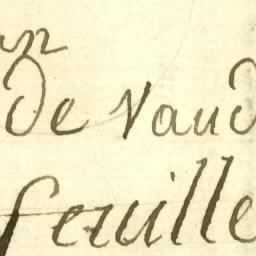 de Vaud
feuille